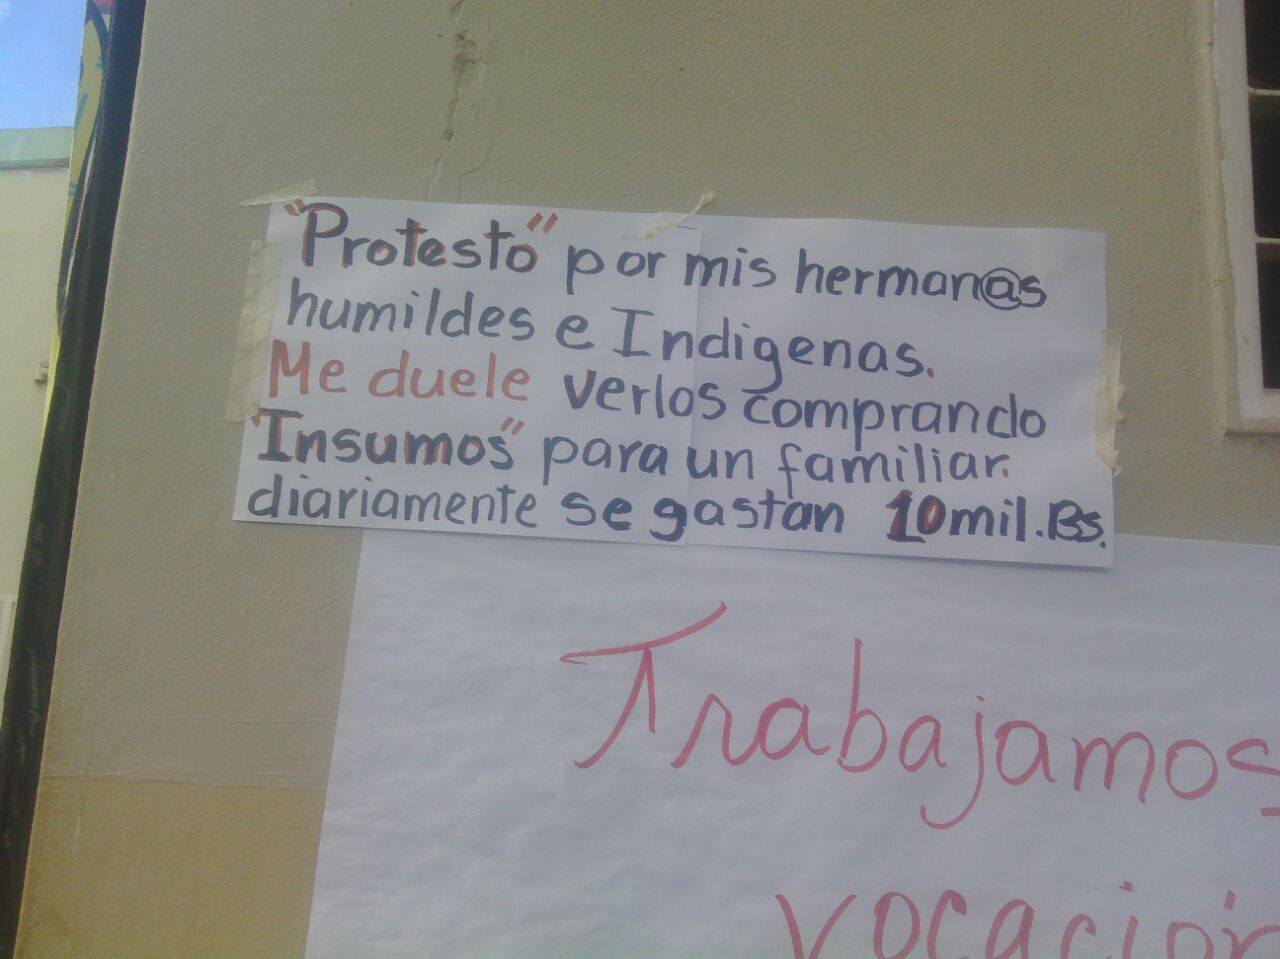 "Protesto" por mis herman@s
humildes e Indigenas.
Me duele verlos comprando
"Insumos" para un familiar.
diariamente se gastan 10mil.Bs.
Trabajamos
vocación